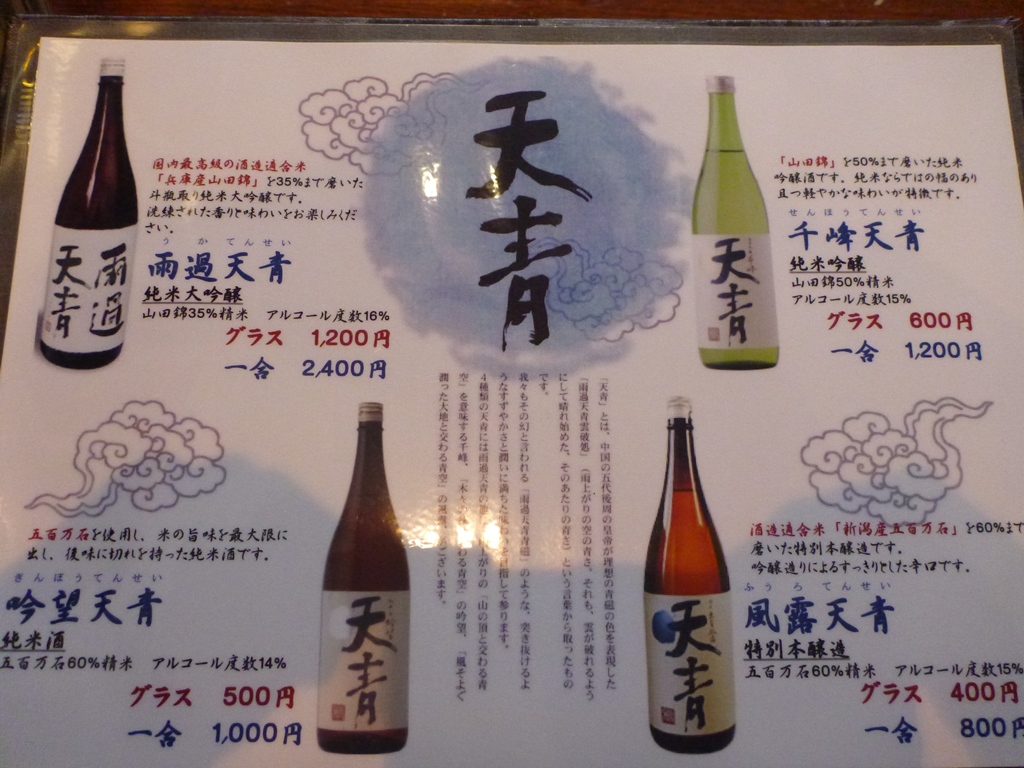 天青
国内最高級の酒造適合米
「兵庫産山田錦」を35%まで磨いた
斗瓶取り純米大吟醸です。
洗練された香りと味わいをお楽しみくだ
さい。
うかてんせい
雨過天青
純米大吟醸
山田錦35%精米 アルコール度数16%
グラス 1,200円
一合 2,400円
雨過
天青
「山田錦」を50%まで磨いた純米
吟醸酒です。純米ならではの幅のあり
且つ軽やかな味わいが特徴です。
せんぽうてんせい
千峰天青
純米吟醸
山田錦50%精米
アルコール度数15%
グラス 600円
一合 1,200円
天青
「天青」とは、中国の五代後周の皇帝が理想の青磁の色を表現した
「雨過天青雲破処」（雨上がりの空の青さ、それも、雲が破れるよう
にして晴れ始めた、そのあたりの青さ）という言葉から取ったもの
です。
我々もその幻と言われる「雨過天青青磁」のような、突き抜けるよ
うなすずやかさと潤いに満ちた味わいを目指して参ります。
4種類の天青には雨過天青の他に
上がりの「山の頂と交わる青
空」を意味する千峰、
わる青空」の吟望、「風そよぐ
潤った大地と交わる青空」の風
ございます。
五百万石を使用し、米の旨味を最大限に
出し、後味に切れを持った純米酒です。
ぎんぼうてんせい
吟望天青
純米酒
五百万石60%精米 アルコール度数14%
グラス 500円
一合 1,000円
天青
酒造適合米「新潟産五百万石」を60%まで
磨いた特別本醸造です。
吟醸造りによるすっきりとした辛口です。
ふうろてんせい
風露天青
特別本醸造
五百万石60%精米 アルコール度数15%
グラス 400円
一合 800円
天青